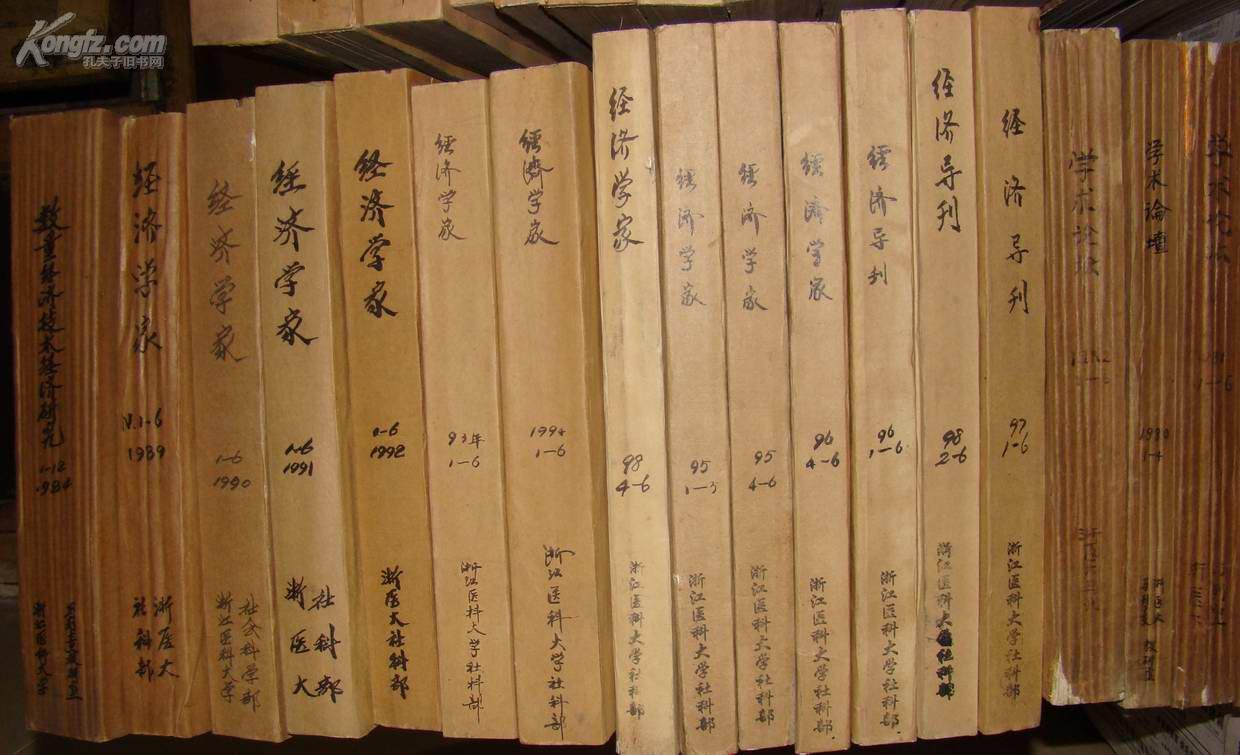 Kongfz.com
孔夫子旧书网
数量经济技术经济研究
1-12
1984
浙江医科大学
经济学家
V.1-6
1989
浙医大
社科部
经济学家
1-6
1990
社会科学部
浙江医科大学
经济学家
1-6
1991
社科部
浙医大
经济学家
1-6
1992
浙医大社科部
经济学家
93年
1-6
浙江医科大学社科部
经濟学家
1994
1-6
浙江医科大学社科部
经济学家
98
4-6
浙江医科大学社科部
经济学家
95
1-3
浙江医科大学社科部
经济学家
95
4-6
浙江医科大学社科部
经济学家
96
4-6
浙江医科大学社科部
经济导刊
96
1-6
浙江医科大学社科部
经济导刊
98
2-6
浙江医科大学社科部
经济导刊
97
1-6
浙江医科大学社科部
学术论坛
1982
1-6
学术论壇
1980
1-4
浙医大
教研室
学术论坛
1-6